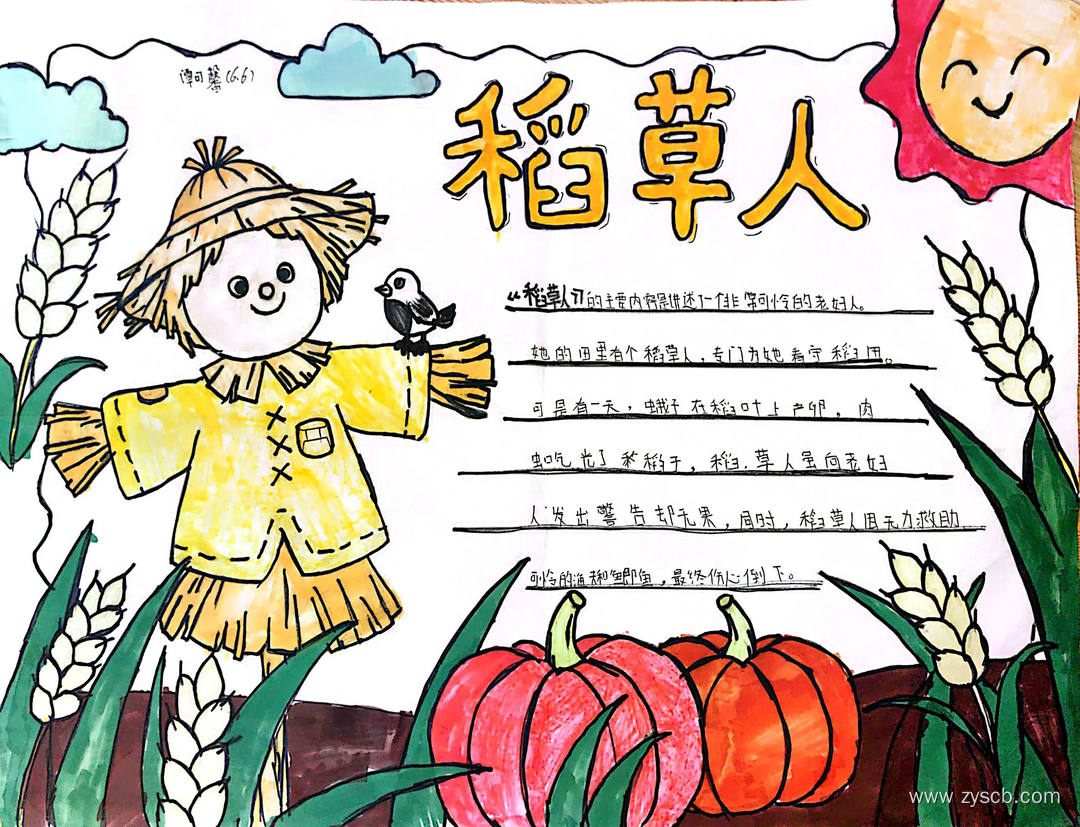 谭可馨(6.6)
稻草人
《稻草人》的主要内容是讲述了一个非常可怜的老妇人。
她的田里有个稻草人,专门为她看守稻田。
可是有一天,蛾子在稻叶上产卵,肉
虫吃光了稻子,稻草人虽向老妇
人发出警告却无果,同时,稻草人因无力救助
可怜的渔妇和鲫鱼,最终伤心倒下。
www.zyscb.com